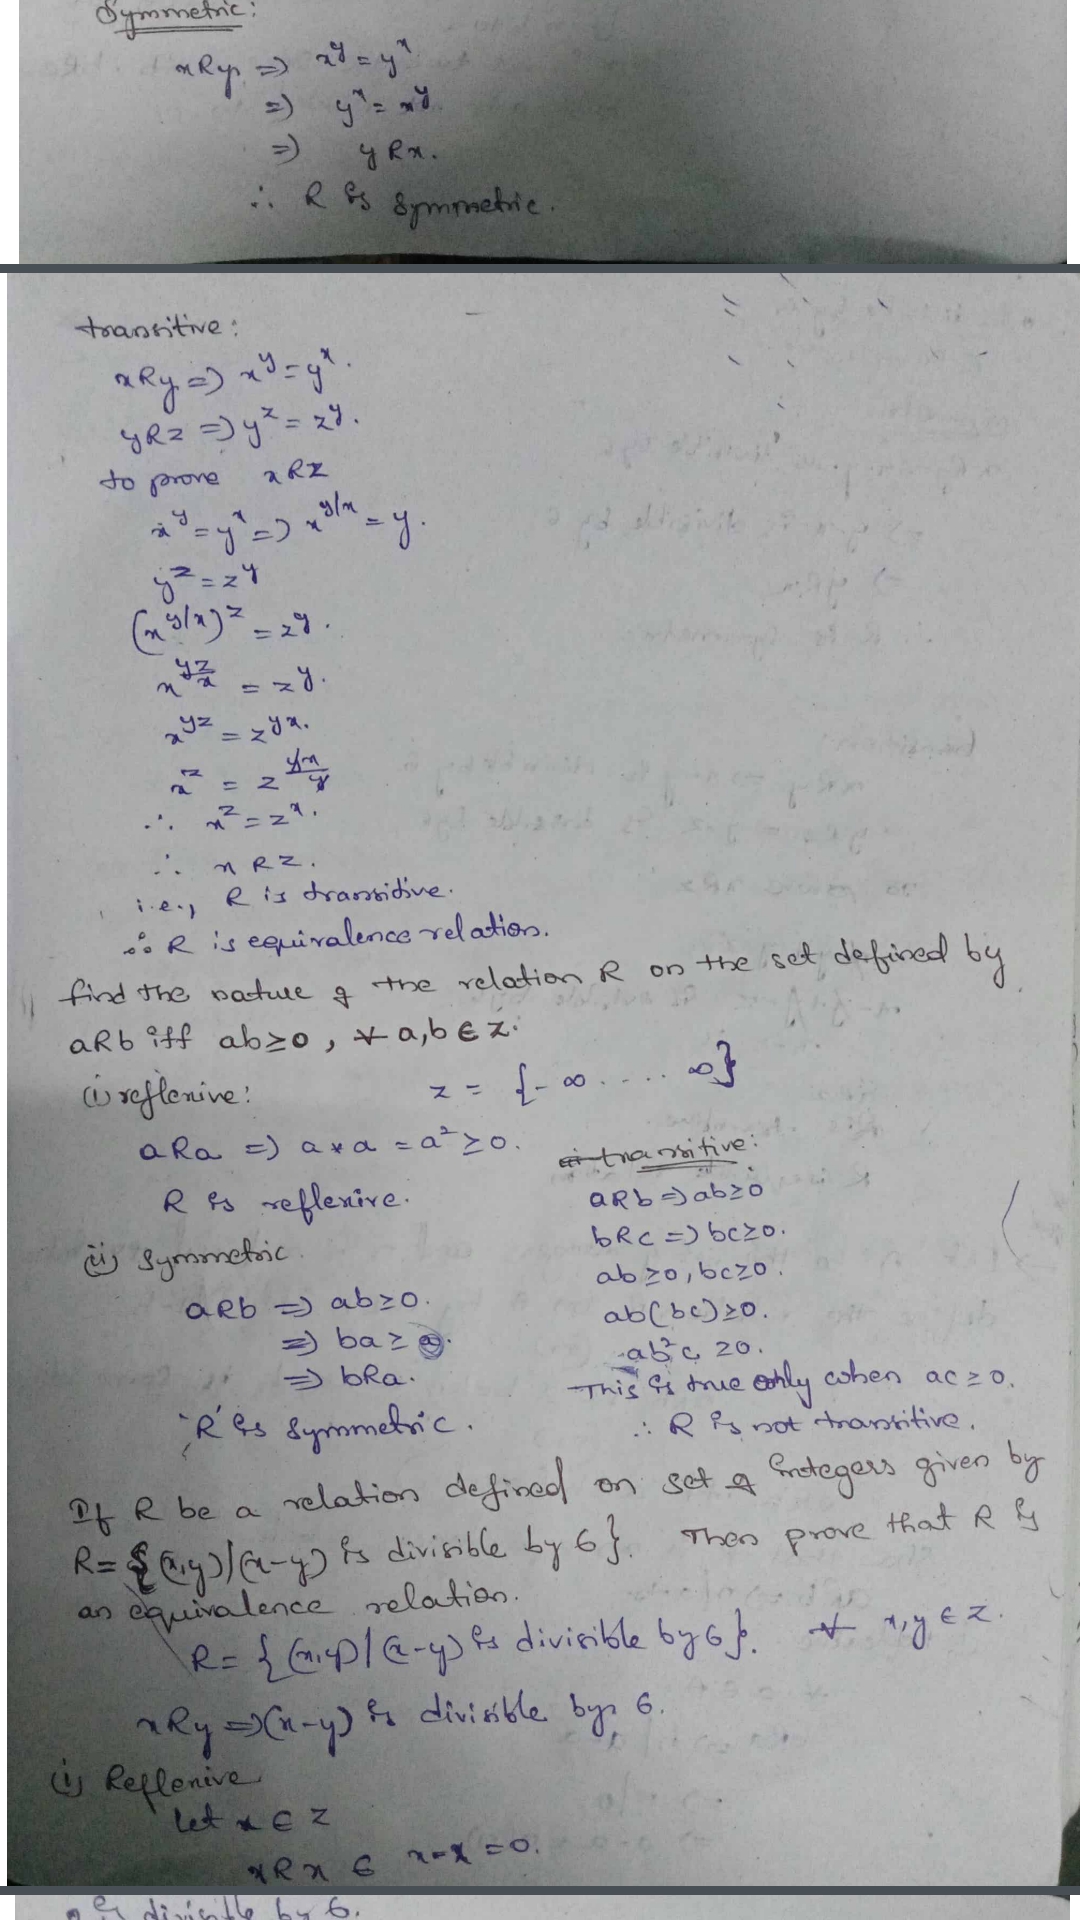 Symmetric:
xRy ⇒ x^y = y^x
⇒ y^x = x^y
⇒ yRx.
∴ R is symmetric.
transitive:
xRy ⇒ x^y = y^x.
yRz ⇒ y^z = z^y.
to prove xRz
x^y = y^x ⇒ x^{y/x} = y.
y^z = z^y
(x^{y/x})^z = z^y.
x^{yz/x} = z^y.
x^{yz} = z^{yx}.
x^z = z^{yx/y}
∴ x^z = z^x.
∴ xRz.
i.e., R is transitive.
∴ R is equivalence relation.
find the nature of the relation R on the set defined by
aRb iff ab≥0, ∀ a,b ∈ z.
(i) reflexive:
z = {-∞ .... ∞}
aRa ⇒ a*a = a² ≥0.
R is reflexive.
(ii) Symmetric
aRb ⇒ ab≥0.
⇒ ba≥0.
⇒ bRa.
R is symmetric.
transitive:
aRb ⇒ ab≥0
bRc ⇒ bc≥0.
ab≥0, bc≥0.
ab(bc)≥0.
ab²c ≥0.
This is true only when ac≥0.
∴ R is not transitive.
If R be a relation defined on set of integers given by
R= {(x,y)/(x-y) is divisible by 6}. Then prove that R is
an equivalence relation.
R= {(x,y)/(x-y) is divisible by 6}. ∀ x,y ∈ z.
xRy ⇒ (x-y) is divisible by 6.
(i) Reflexive
Let x ∈ z
xRx ∈ x-x = 0.
is divisible by 6.